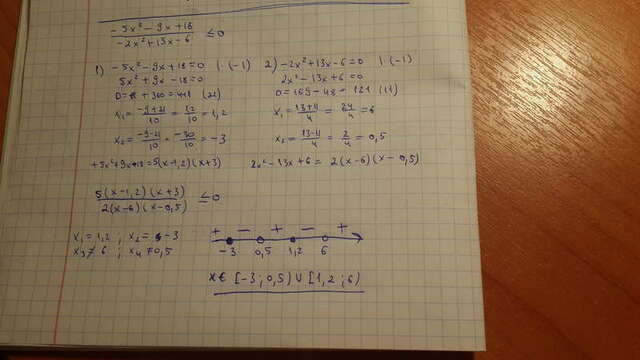 (-5x² - 9x + 18)/(-2x² + 13x - 6) ≤ 0
1) -5x² - 9x + 18 = 0 | · (-1)
5x² + 9x - 18 = 0
x₁ = (-9+21)/10 = 12/10 = 1,2
x₂ = (-9-21)/10 = -30/10 = -3
+5x²+9x-18 = 5(x-1,2)(x+3)
2) -2x² + 13x - 6 = 0 | · (-1)
2x² - 13x + 6 = 0
D = 169 - 48 = 121 (11)
x₁ = (13+11)/4 = 24/4 = 6
x₂ = (13-11)/4 = 2/4 = 0,5
2x² - 13x + 6 = 2(x-6)(x-0,5)
5(x-1,2)(x+3)/2(x-6)(x-0,5) ≤ 0
x₁ = 1,2 ; x₂ = -3
x₃ ≠ 6 ; x₄ ≠ 0,5
+ - + - +
-3 0,5 1,2 6
x ∈ [-3; 0,5) ∪ [1,2; 6)